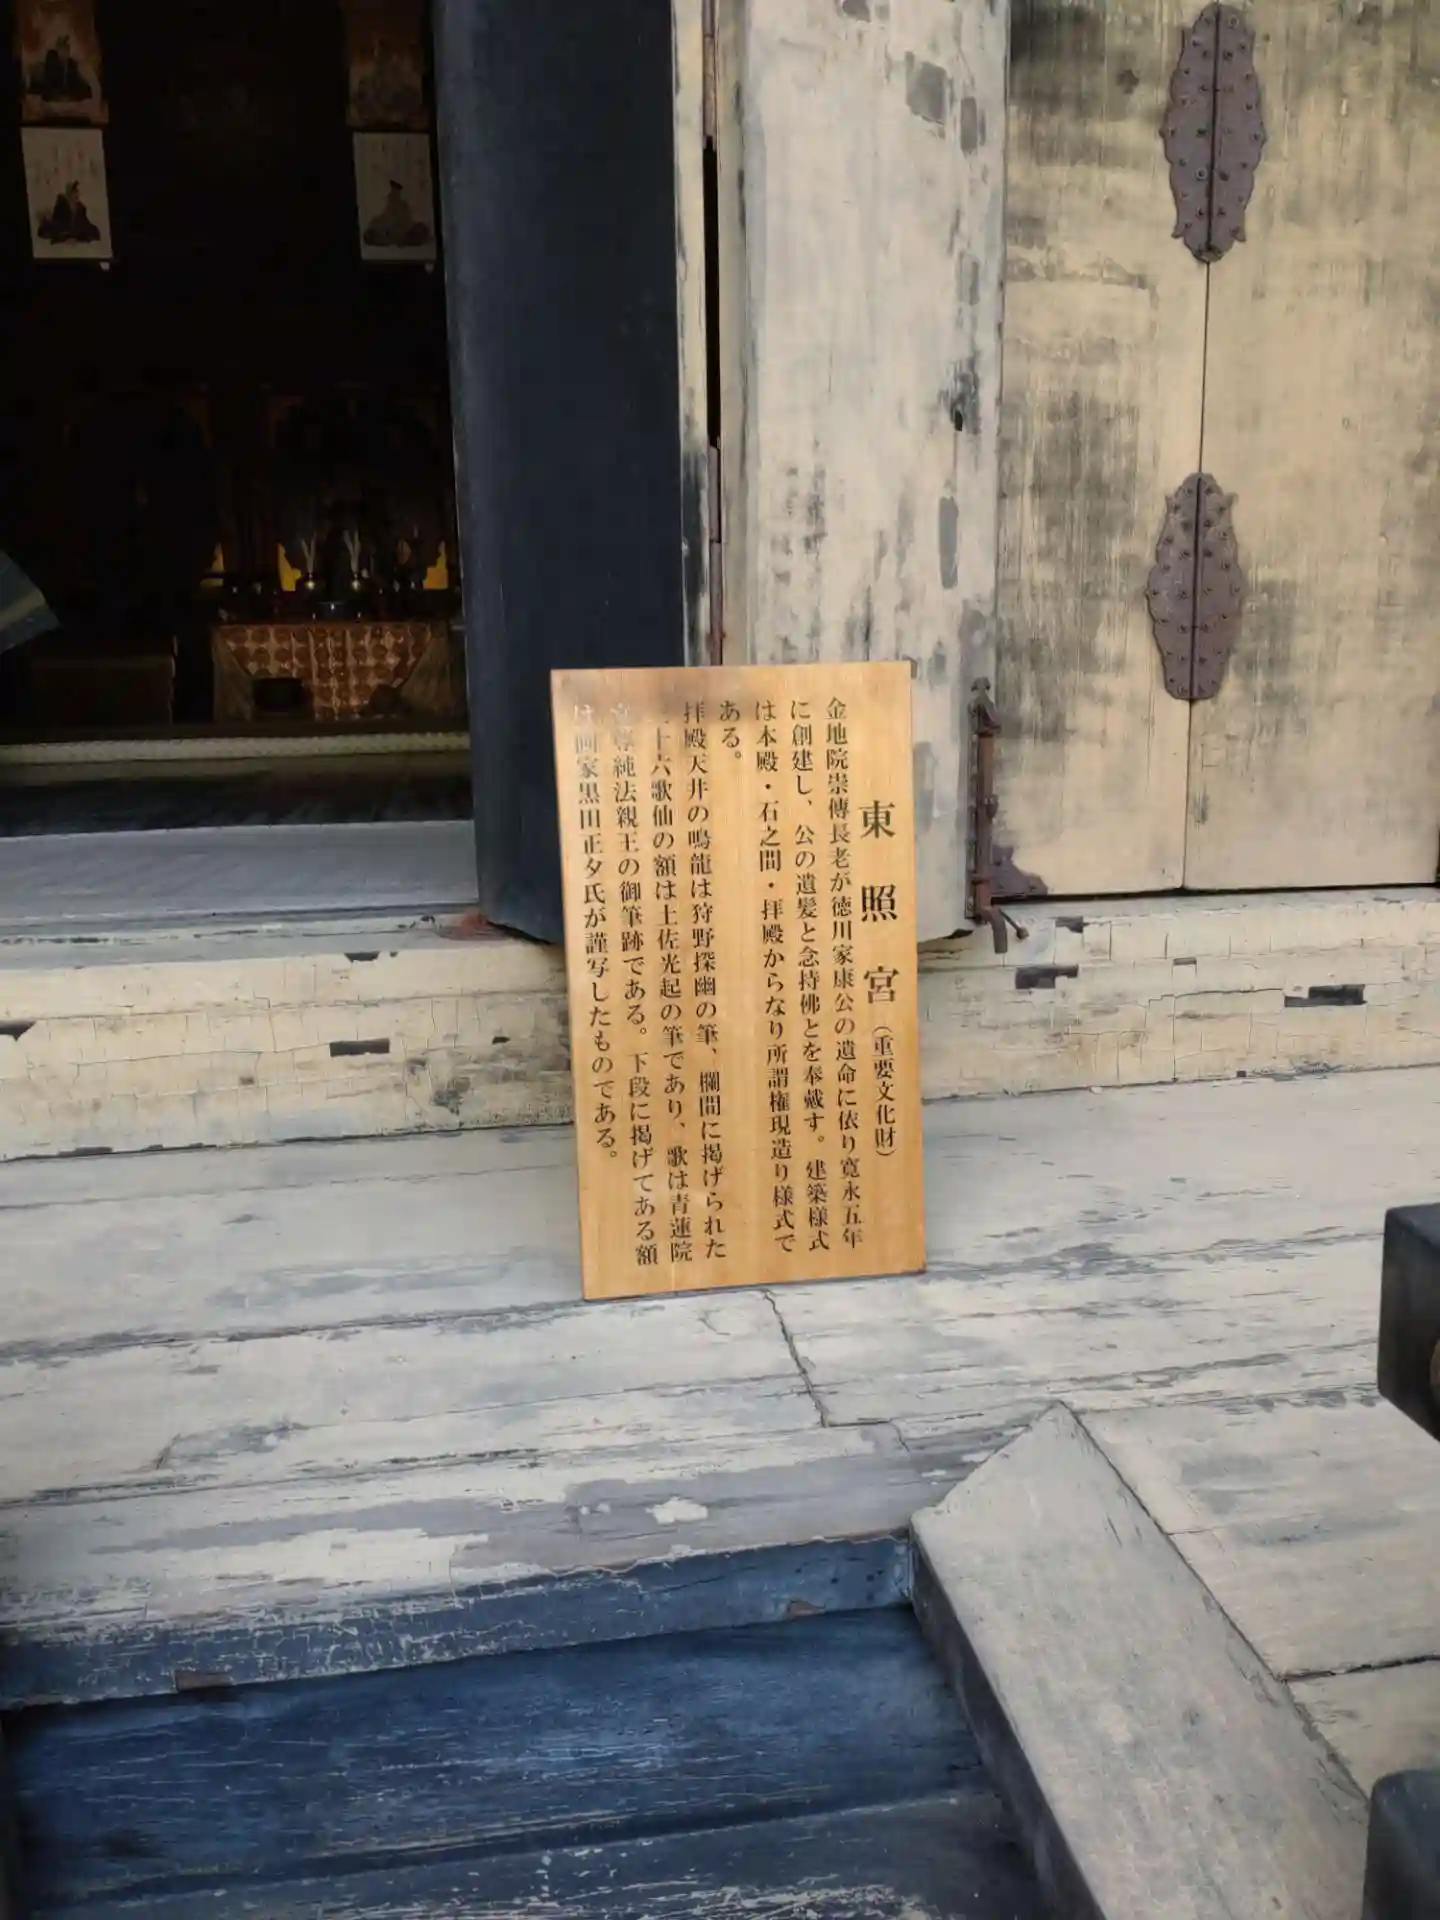 東照宮（重要文化財）
金地院崇傳長老が徳川家康公の遺命に依り寛永五年
に創建し、公の遺髪と念持佛とを奉戴す。建築様式
は本殿・石之間・拝殿からなり所謂権現造り様式で
ある。
拝殿天井の鳴龍は狩野探幽の筆、欄間に掲げられた
三十六歌仙の額は土佐光起の筆であり、歌は青蓮院
尊純法親王の御筆跡である。下段に掲げてある額
は画家黒田正夕氏が謹写したものである。